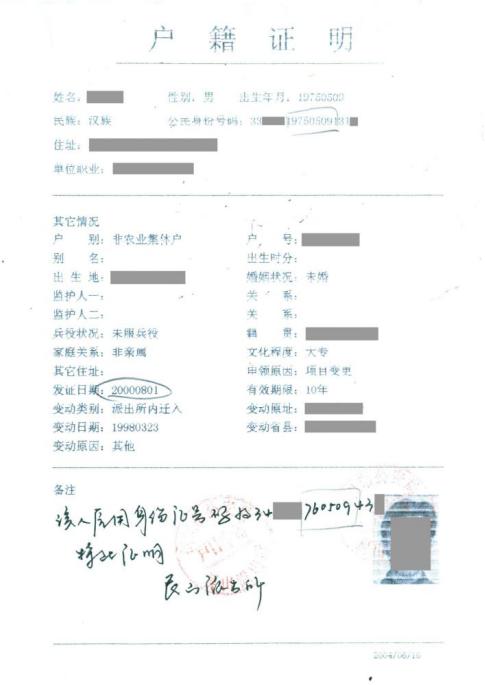 户籍证明
姓名： 性别：男 出生年月：19750509
民族：汉族 公民身份号码：33 19750509131
住址：
单位职业：
其它情况
户 别：非农业集体户 户 号：
别 名： 出生时分：
出 生 地： 婚姻状况：未婚
监护人一： 关 系：
监护人二： 关 系：
兵役状况：未服兵役 籍 贯：
家庭关系：非亲属 文化程度：大专
其它住址： 申领原因：项目变更
发证日期：20000801 有效期限：10年
变动类别：派出所内迁入 变动原址：
变动日期：19980323 变动省县：
变动原因：其他
备注
该人原用身份证号码为34 76050943
特此证明
派出所
2004/06/10